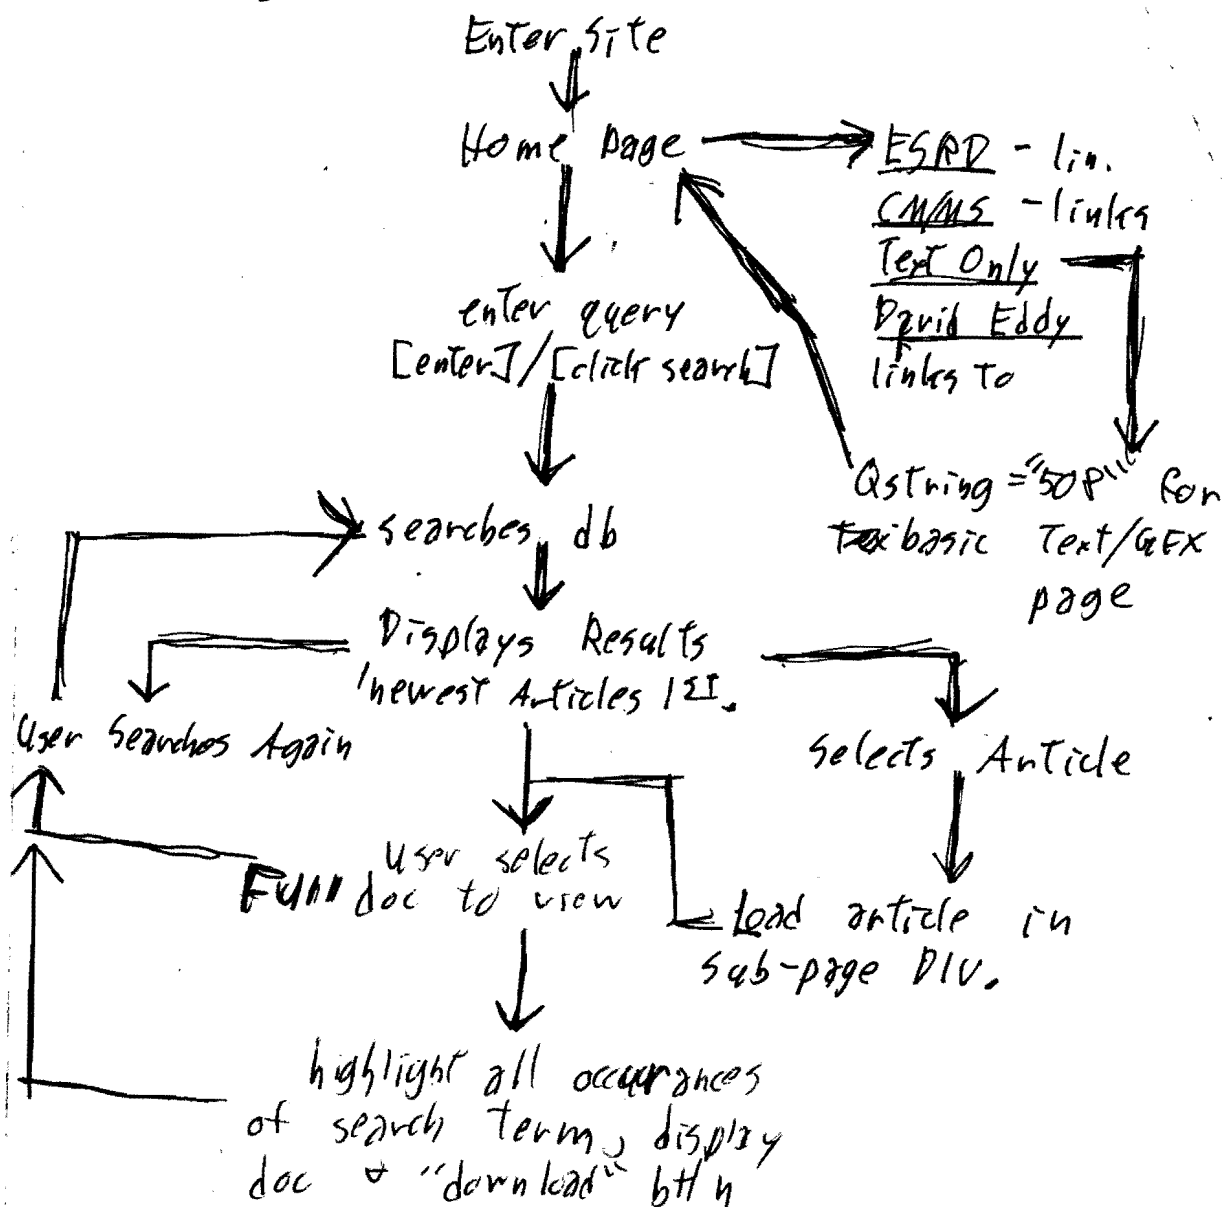 Enter Site
Home Page
ESRD - lin.
CM/MS - links
Text Only
David Eddy
links to
enter query
[enter]/[click search]
Qstring = "50P" for
basic Text/GFX
page
searches db
Displays Results
newest Articles 1st.
User Searches Again
Selects Article
User selects
Full doc to view
Load article in
Sub-page DIV.
highlight all occurances
of search term, display
doc & "download" bttn